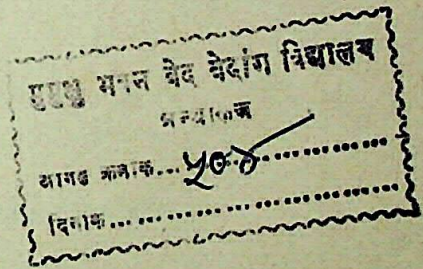 मुमुक्षु भवन वेद वेदांग विद्यालय
ग्रन्थालय
आगत क्रमांक... ५०४ ...............
दिनांक.................................